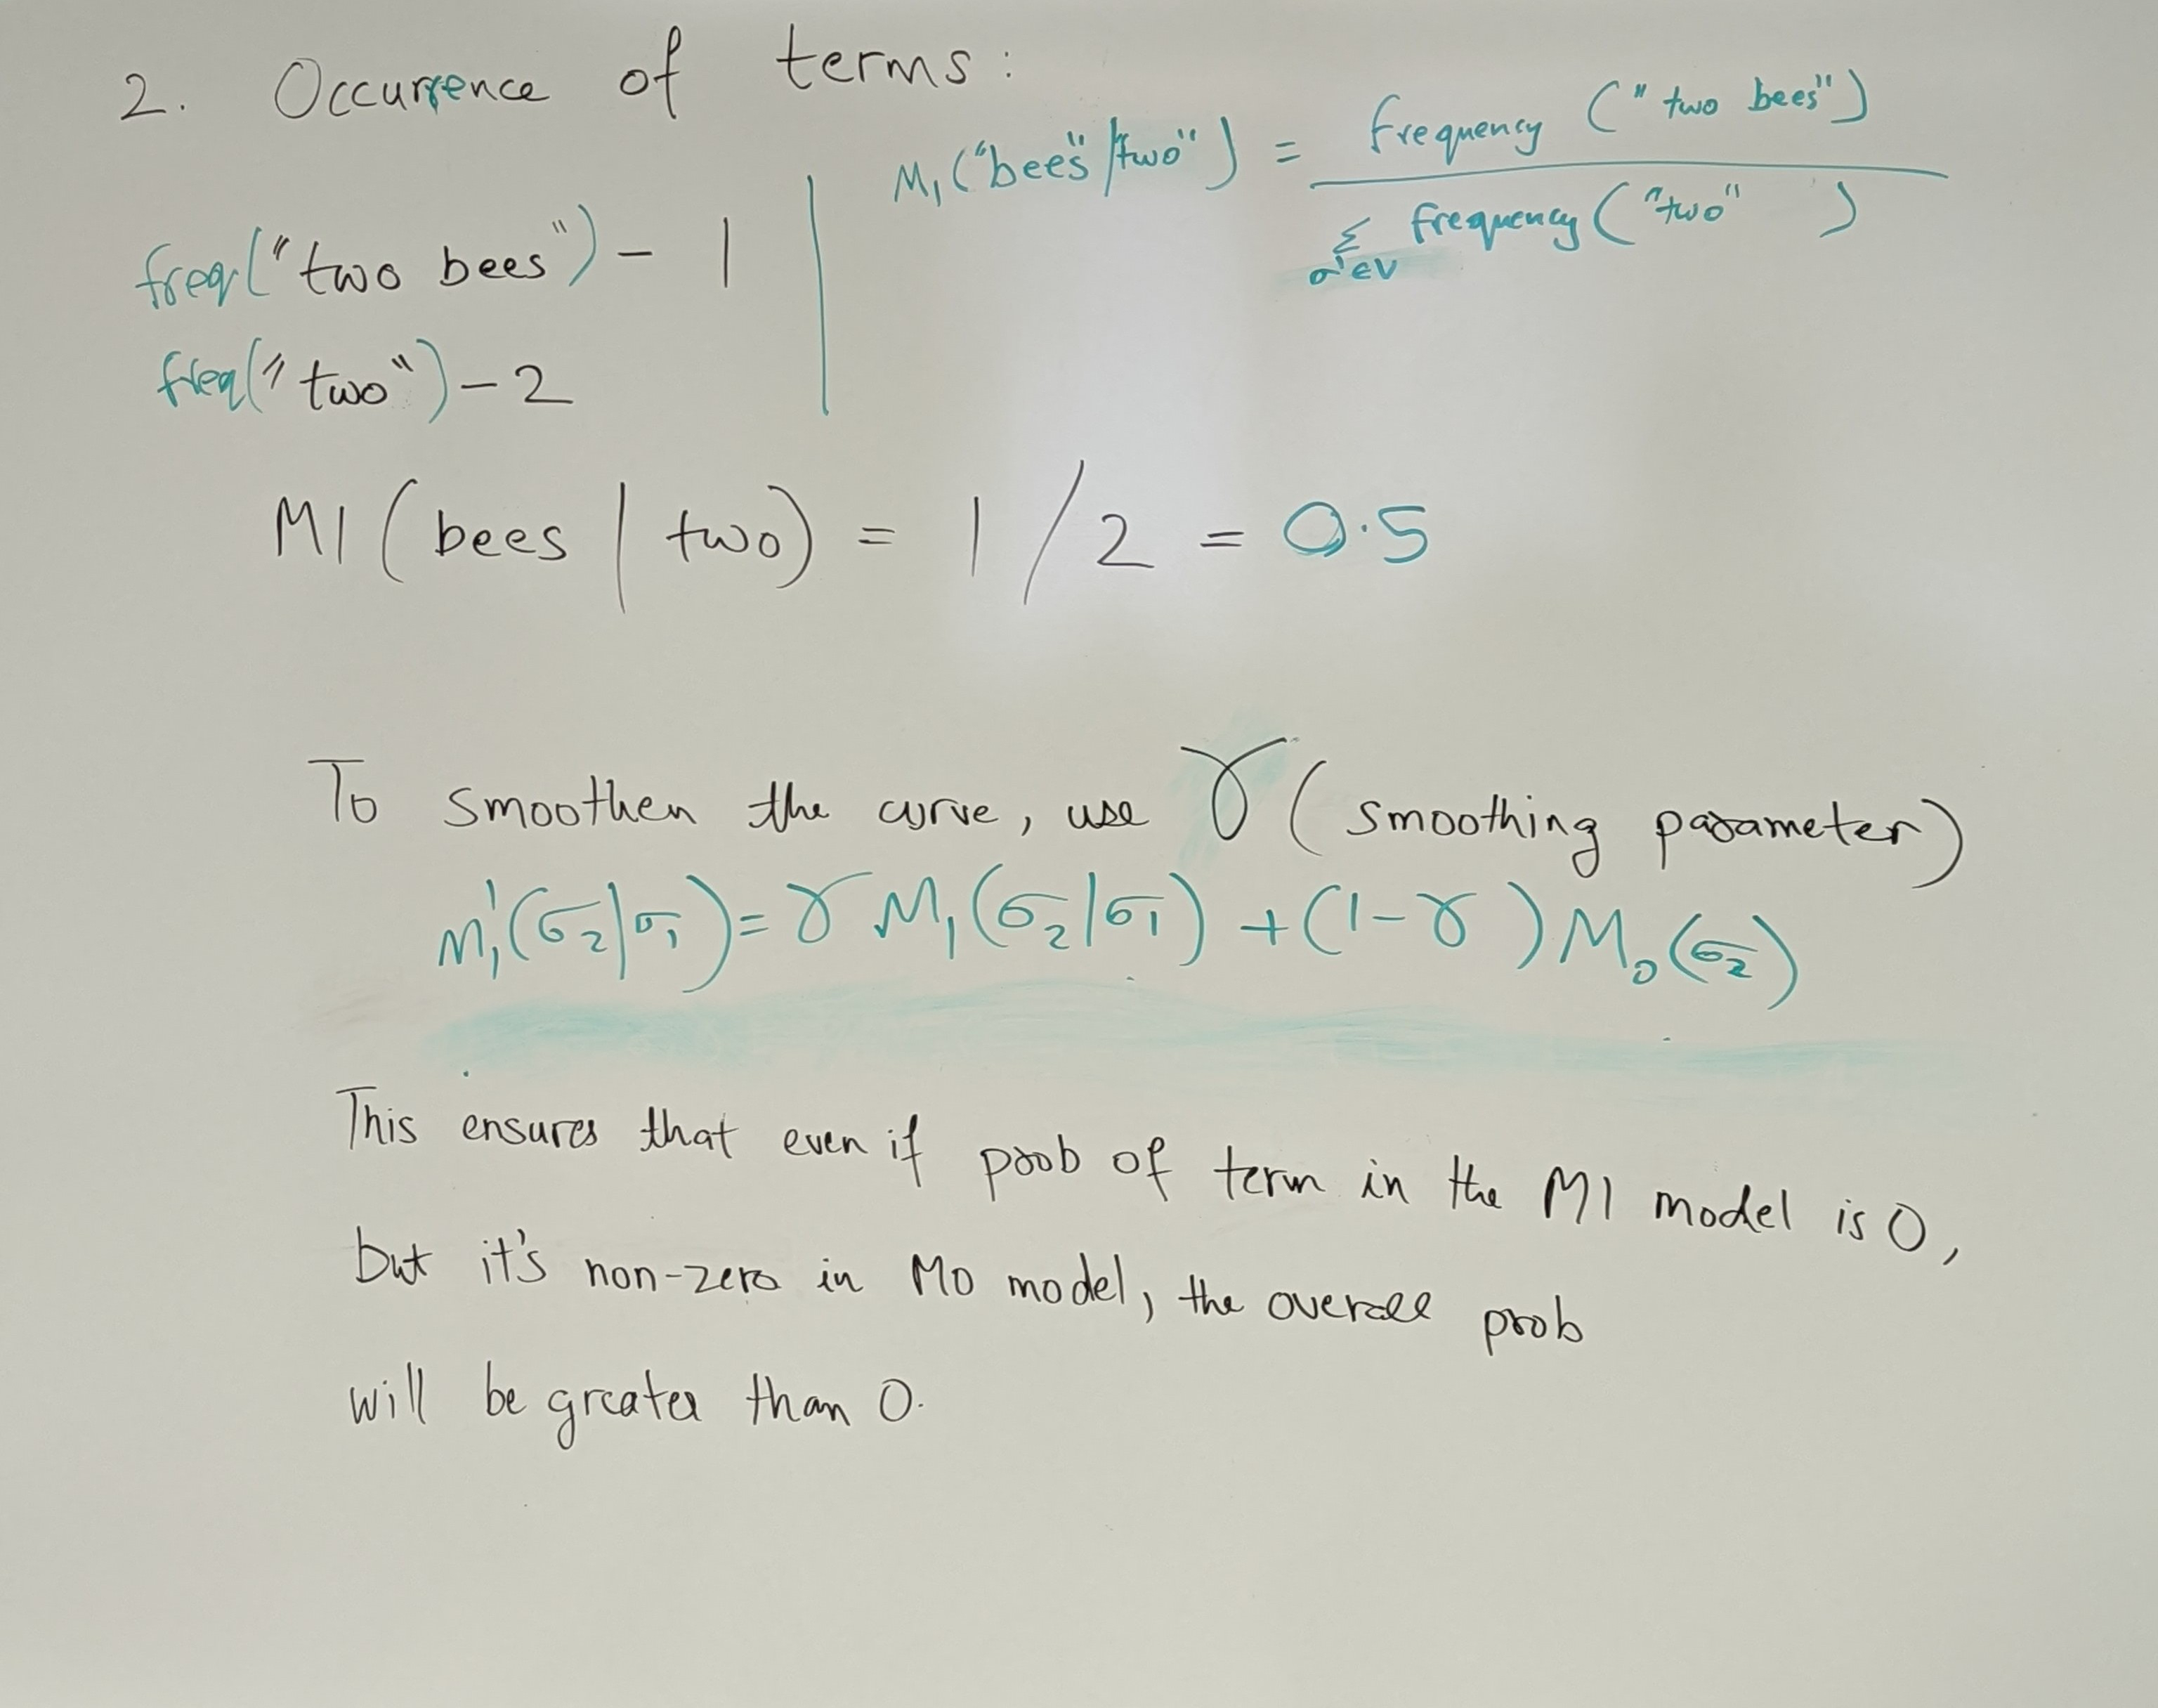 2. Occurrence of terms:
M₁("bees"|"two") = frequency ("two bees")
Σ frequency ("two" )
σ'∈V
freq("two bees") - 1
freq("two") - 2
M1 (bees | two) = 1/2 = 0.5
To smoothen the curve, use γ (smoothing parameter)
M₁'(σ₂|σ₁) = γ M₁(σ₂|σ₁) + (1-γ) M₀(σ₂)
This ensures that even if prob of term in the M1 model is 0,
but it's non-zero in M0 model, the overall prob
will be greater than 0.